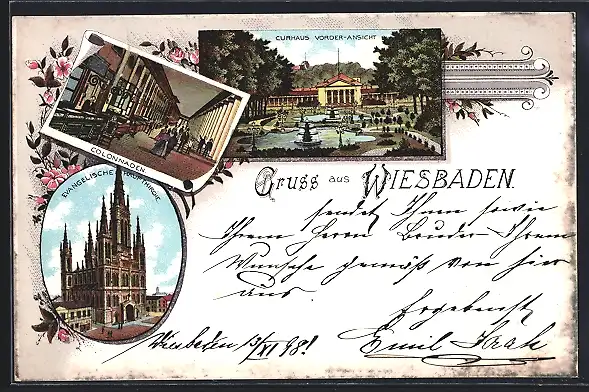 CURHAUS VORDER-ANSICHT
COLONNADEN
EVANGELISCHE HAUPTKIRCHE
GRUSS AUS WIESBADEN.
sendet Ihnen sowie
Ihrem Herrn Bruder Ihrem
Wunsche gemäß von hier
aus
Ergebenst
Emil
Wiesbaden 98!